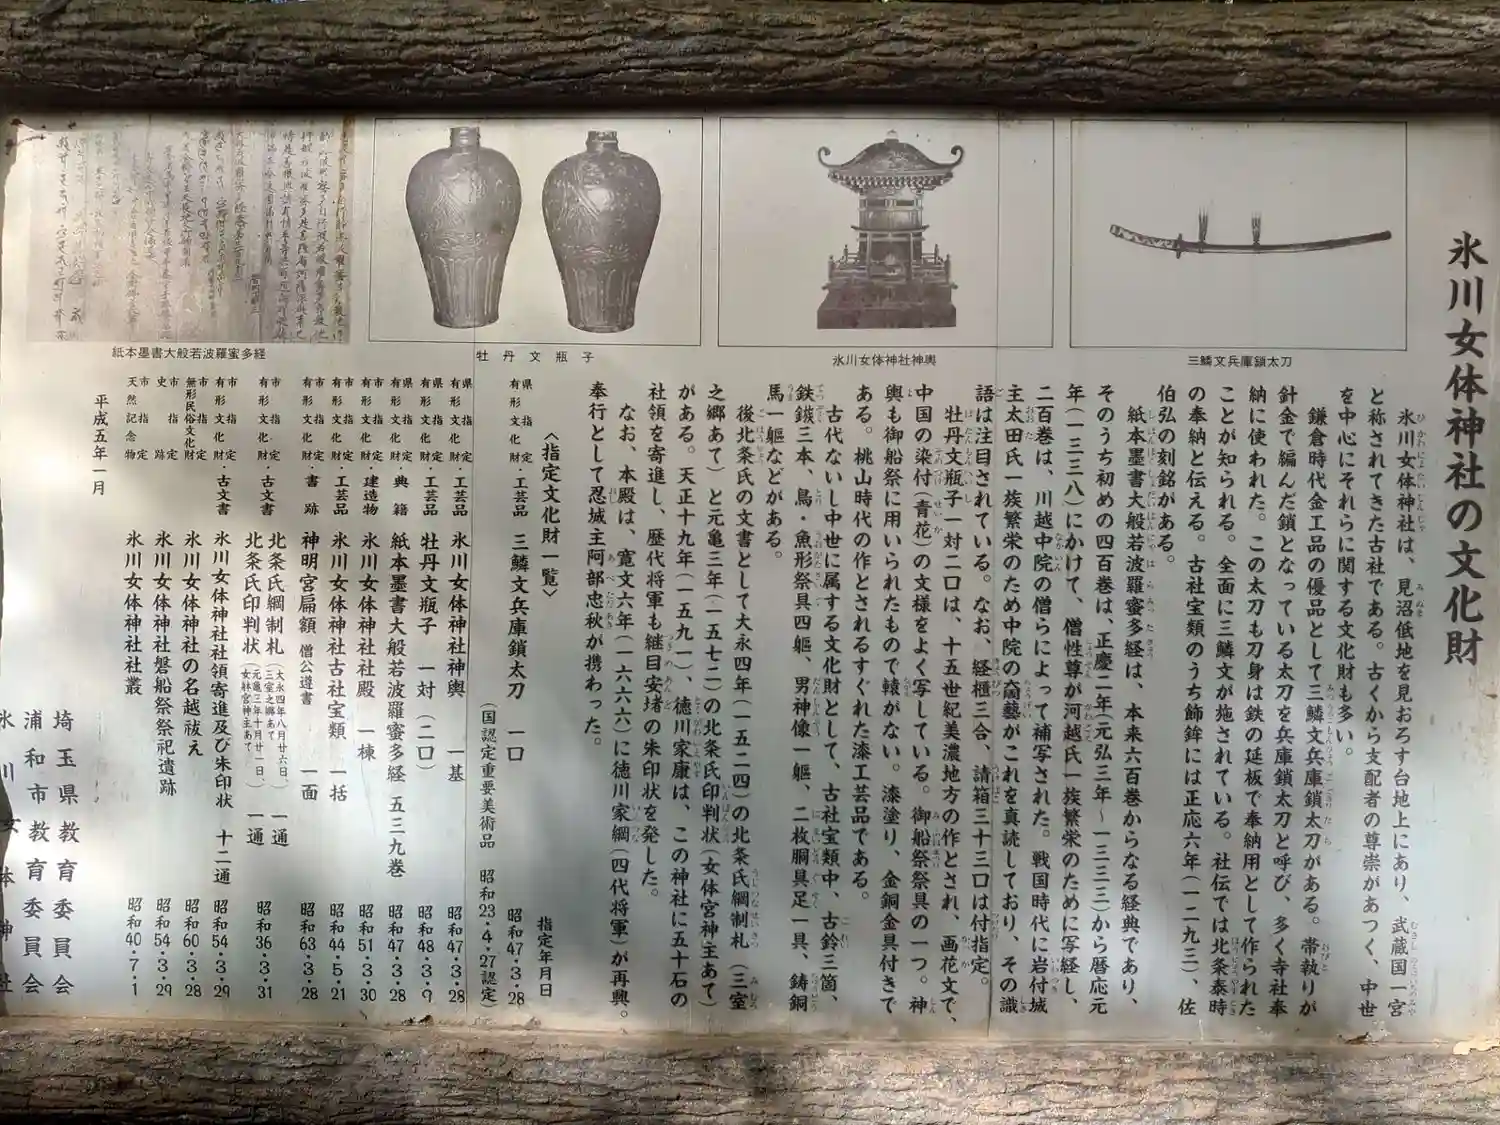 氷川女体神社の文化財
三鱗文兵庫鎖太刀
氷川女体神社神輿
牡丹文瓶子
紙本墨書大般若波羅蜜多経
氷川女体神社は、見沼低地を見おろす台地上にあり、武蔵国一宮
と称されてきた古社である。古くから支配者の尊崇があつく、中世
を中心にそれらに関する文化財も多い。
鎌倉時代金工品の優品として三鱗文兵庫鎖太刀がある。帯執りが
針金で編んだ鎖となっている太刀を兵庫鎖太刀と呼び、多く寺社奉
納に使われた。この太刀も刀身は鉄の延板で奉納用として作られた
ことが知られる。全面に三鱗文が施されている。社伝では北条泰時
の奉納と伝える。古社宝類のうち飾鉾には正応六年(一二九三)、佐
伯弘の刻銘がある。
紙本墨書大般若波羅蜜多経は、本来六百巻からなる経典であり、
そのうち初めの四百巻は、正慶二年(元弘三年~一三三三)から暦応元
年(一三三八)にかけて、僧性尊が河越氏一族繁栄のために写経し、
二百巻は、川越中院の僧らによって補写された。戦国時代に岩付城
主太田氏一族繁栄のため中院の奝藝がこれを真読しており、その識
語は注目されている。なお、経櫃三合、請箱三十三口は付指定。
牡丹文瓶子一対二口は、十五世紀美濃地方の作とされ、画花文で、
中国の染付(青花)の文様をよく写している。御船祭祭具の一つ。神
輿も御船祭に用いられたもので轅がない。漆塗り、金銅金具付きで
ある。桃山時代の作とされるすぐれた漆工芸品である。
古代ないし中世に属する文化財として、古社宝類中、古鈴三箇、
鉄鏃三本、鳥・魚形祭具四躯、男神像一躯、二枚胴具足一具、鋳銅
馬一躯などがある。
後北条氏の文書として大永四年(一五二四)の北条氏綱制札(三室
之郷あて)と元亀三年(一五七二)の北条氏印判状(女体宮神主あて)
がある。天正十九年(一五九一)、徳川家康は、この神社に五十石の
社領を寄進し、歴代将軍も継目安堵の朱印状を発した。
なお、本殿は、寛文六年(一六六六)に徳川家綱(四代将軍)が再興。
奉行として忍城主阿部忠秋が携わった。
〈指定文化財一覧〉 指定年月日
県指定有形文化財・工芸品 三鱗文兵庫鎖太刀 一口 昭和47・3・28
(国認定重要美術品 昭和23・4・27認定)
県指定有形文化財・工芸品 氷川女体神社神輿 一基 昭和47・3・28
県指定有形文化財・工芸品 牡丹文瓶子 一対(二口) 昭和48・3・9
県指定有形文化財・典籍 紙本墨書大般若波羅蜜多経 五三九巻 昭和47・3・28
市指定有形文化財・建造物 氷川女体神社社殿 一棟 昭和51・3・30
市指定有形文化財・工芸品 氷川女体神社古社宝類 一括 昭和44・5・21
市指定有形文化財・書跡 神明宮扁額 僧公遵書 一面 昭和63・3・28
市指定有形文化財・古文書 北条氏綱制札(大永四年八月廿六日、三室之郷あて) 一通 昭和36・3・31
北条氏印判状(元亀三年十月廿一日、女躰宮神主あて) 一通
市指定有形文化財・古文書 氷川女体神社社領寄進及び朱印状 十二通 昭和54・3・29
市指定無形民俗文化財 氷川女体神社の名越祓え 昭和60・3・28
市指定史跡 氷川女体神社磐船祭祭祀遺跡 昭和54・3・29
市指定天然記念物 氷川女体神社社叢 昭和40・7・1
平成五年一月
埼玉県教育委員会
浦和市教育委員会
氷川女体神社